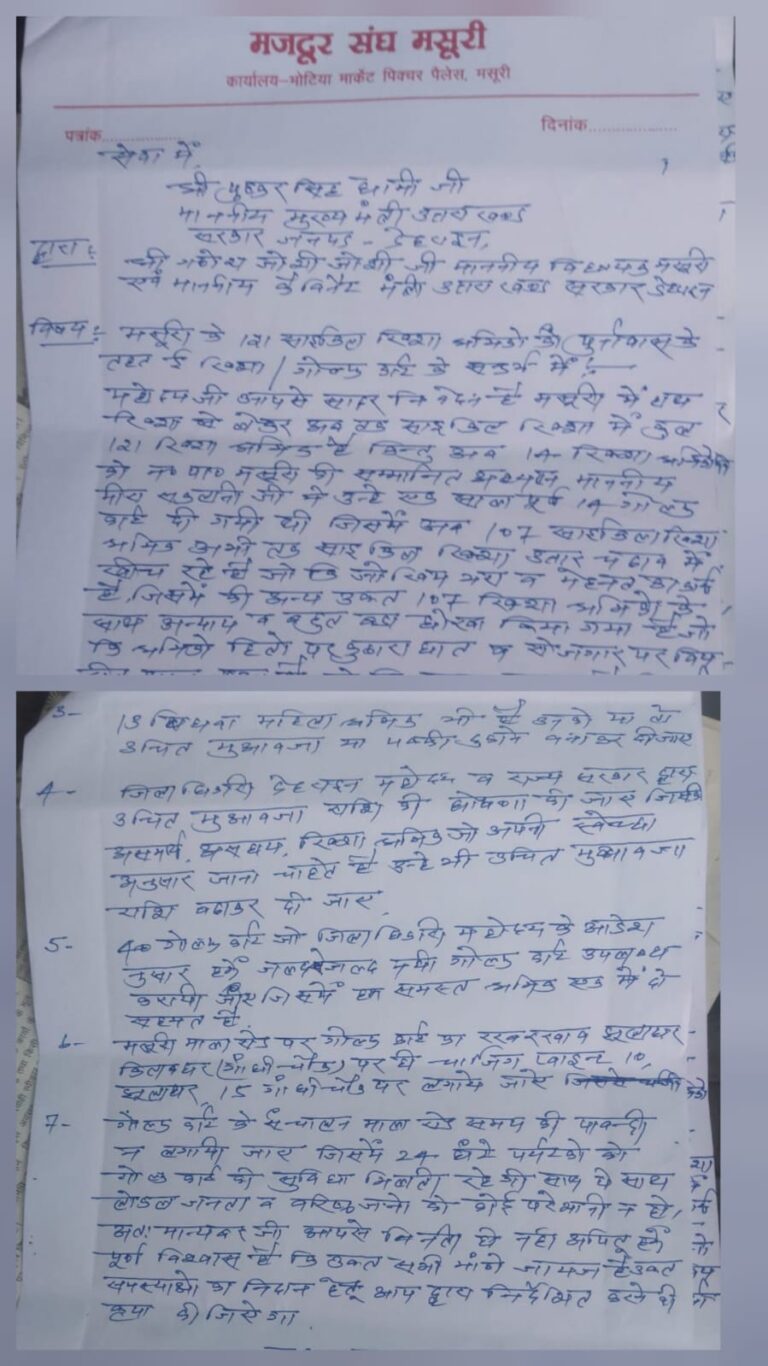 मजदूर संघ मसूरी
कार्यालय-भोटिया मार्केट पिक्चर पैलेस, मसूरी
पत्रांक.................. दिनांक....................
सेवा में,
श्री पुष्कर सिंह धामी जी
माननीय मुख्य मंत्री उत्तराखण्ड
सरकार जनपद - देहरादून,
द्वारा:- श्री गणेश जोशी जोशी जी माननीय विधायक मसूरी
एवं माननीय कैबिनेट मंत्री उत्तराखण्ड सरकार देहरादून
विषय:- मसूरी के 121 साइकिल रिक्शा श्रमिको की पुर्नावास के
तहत ई रिक्शा / गोल्फ कार्ट के सन्दर्भ में:-
महोदय जी आपसे सादर निवेदन है मसूरी में हाथ
रिक्शा से लेकर अब तक साइकिल रिक्शा में कुल
121 रिक्शा श्रमिक है किन्तु अब 14 रिक्शा श्रमिको
को न० पा० मसूरी की सम्मानित अध्यक्ष माननीय
मीरा सकलानी जी ने उन्हे एक साल पूर्व 14 गोल्फ
कार्ट दी गयी थी जिसमें अब 107 साइकिल रिक्शा
श्रमिक अभी तक साइकिल रिक्शा उतार चढाव में
खींच रहे है जो कि जोखिम भरा व मेहनत का कार्य
है, जिसमें की अन्य उक्त 107 रिक्शा श्रमिको के
साथ अन्याय व बहुत बडा धोखा किया गया है जो
कि श्रमिको हितो पर कुठाराघात व रोजगार पर
3- 13 विधवा महिला श्रमिक भी है उनको या तो
उचित मुआवजा या पक्की दुकाने बनाकर दी जाए
4- जिलाधिकारी देहरादून महोदय व राज्य सरकार द्वारा
उचित मुआवजा राशि की घोषणा की जाए जिसमें
असमर्थ, असहाय, रिक्शा श्रमिक जो अपनी स्वेच्छा
अनुसार जाना चाहते है उन्हे भी उचित मुआवजा
राशि बढाकर दी जाए,
5- 40 गोल्फ कार्ट जो जिलाधिकारी महोदय के आदेश
नुसार हमें जल्द से जल्द नयी गोल्फ कार्ट उपलब्ध
करायी जाए जिसमें हम समस्त श्रमिक एक में दो
सहमत है
6- मसूरी माल रोड पर गोल्फ कार्ट का रखरखाव झूलाघर
(गाँधी चौक) पर ही चार्जिंग प्वाइन्ट 10,
झूलाघर, 15 गाँधी चौक पर लगाये जाऐ
7- गोल्फ कार्ट के संचालन माल रोड समय की पाबन्दी
न लगायी जाए जिसमें 24 घंटे पर्यटको को
गोल्फ कार्ट की सुविधा मिलती रहेगी साथ ही साथ
लोकल जनता व वरिष्ठ जनो को कोई परेशानी न हो,
अतः मान्यवर जी आपसे विनती ही नही अपितु हमें
पूर्ण विश्वास है कि उक्त सभी मांगे जायज है उक्त
समस्याओ का निदान हेतू आप द्वारा निर्देशित करने की
कृपा की जिऐगा